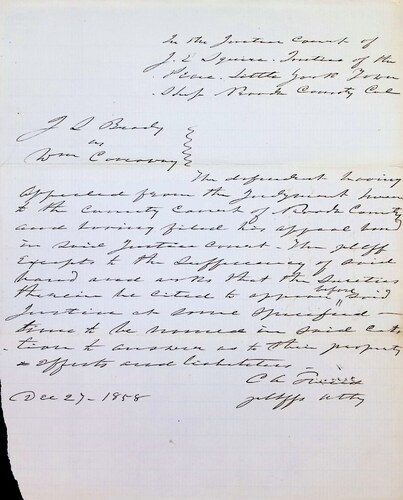 In the Justice Court of
J. E. Squire. Justice of the
Peace. Little York Town
Ship Butte County Cal
J S Beady
vs
Wm Conoway
The defendant having
appealed from the Judgment
to the County Court of County
and having filed his appeal bond
in said Justice Court. The pltff
Excepts to the Sufficiency of said
bond and asks that the Sureties
therein be cited to appear before said
Justice at some Specified
time to be named in said Cita
tion to answer as to their property
& effects and liabilities
C A
Dec 27 - 1858 pltffs Atty